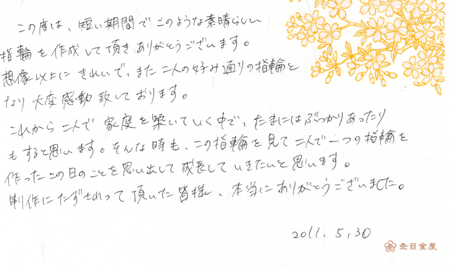 この度は、短い期間でこのような素晴らしい
指輪を作成して頂きありがとうございます。
想像以上にきれいで、また二人の好み通りの指輪と
なり大変感動致しております。
これから二人で家庭を築いていく中で、たまにはぶつかりあったり
もすると思います。そんな時も、この指輪を見て二人で一つの指輪を
作ったこの日のことを思い出して成長していきたいと思います。
制作にたずさわって頂いた皆様、本当にありがとうございました。
2011. 5. 30
杢目金屋